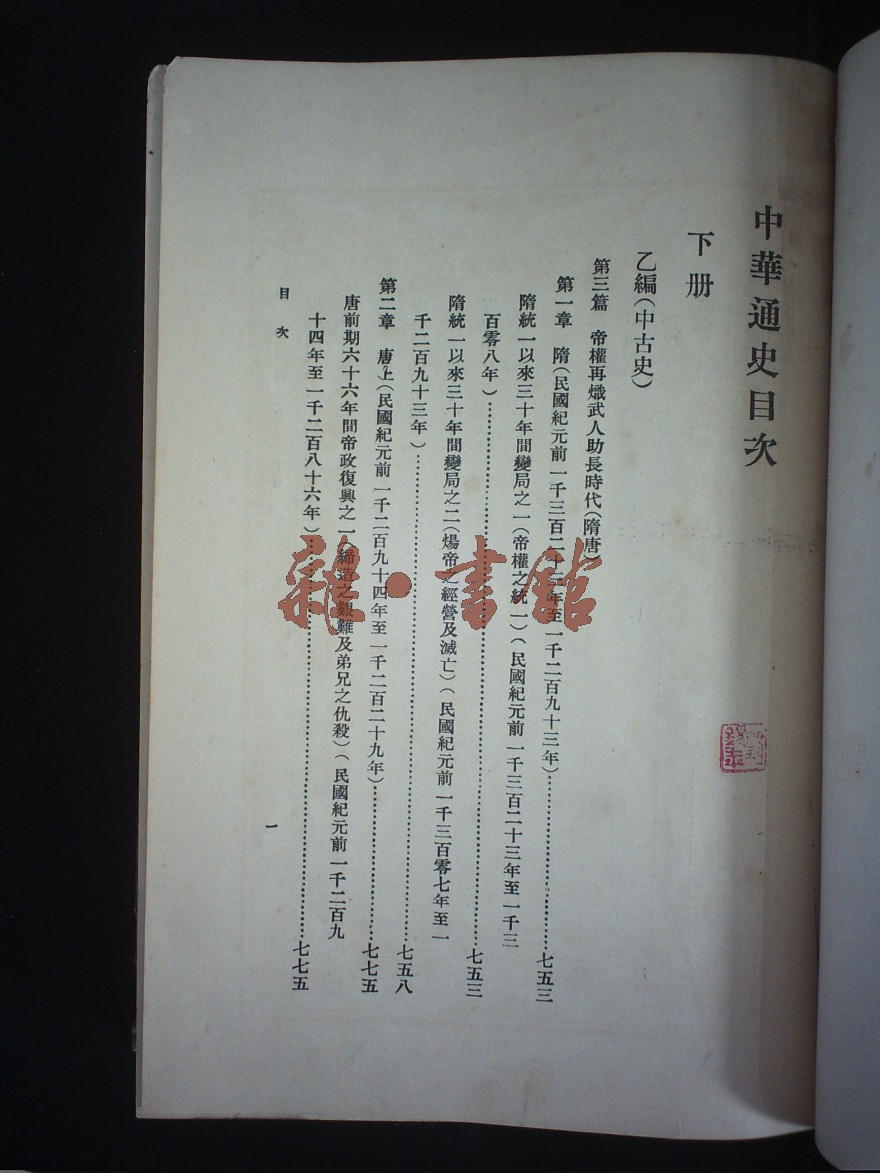 中華通史目次
下册
乙編(中古史)
第三篇 帝權再熾武人助長時代(隋唐)
第一章 隋(民國紀元前一千三百二十三年至一千二百九十三年)……七五三
隋統一以來三十年間變局之一(帝權之統一)(民國紀元前一千三百二十三年至一千三
百零八年)……七五三
隋統一以來三十年間變局之二(煬帝之經營及滅亡)(民國紀元前一千三百零七年至一
千二百九十三年)……七五八
第二章 唐上(民國紀元前一千二百九十四年至一千二百二十九年)……七七五
唐前期六十六年間帝政復興之一(締造之艱難及弟兄之仇殺)(民國紀元前一千二百九
十四年至一千二百八十六年)……七七五
目次
一
雜·書館